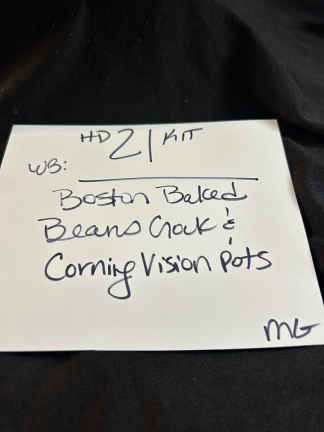 HD 21 KIT
WB:
Boston Baked
Beans Crock &
Corning Vision Pots
MG